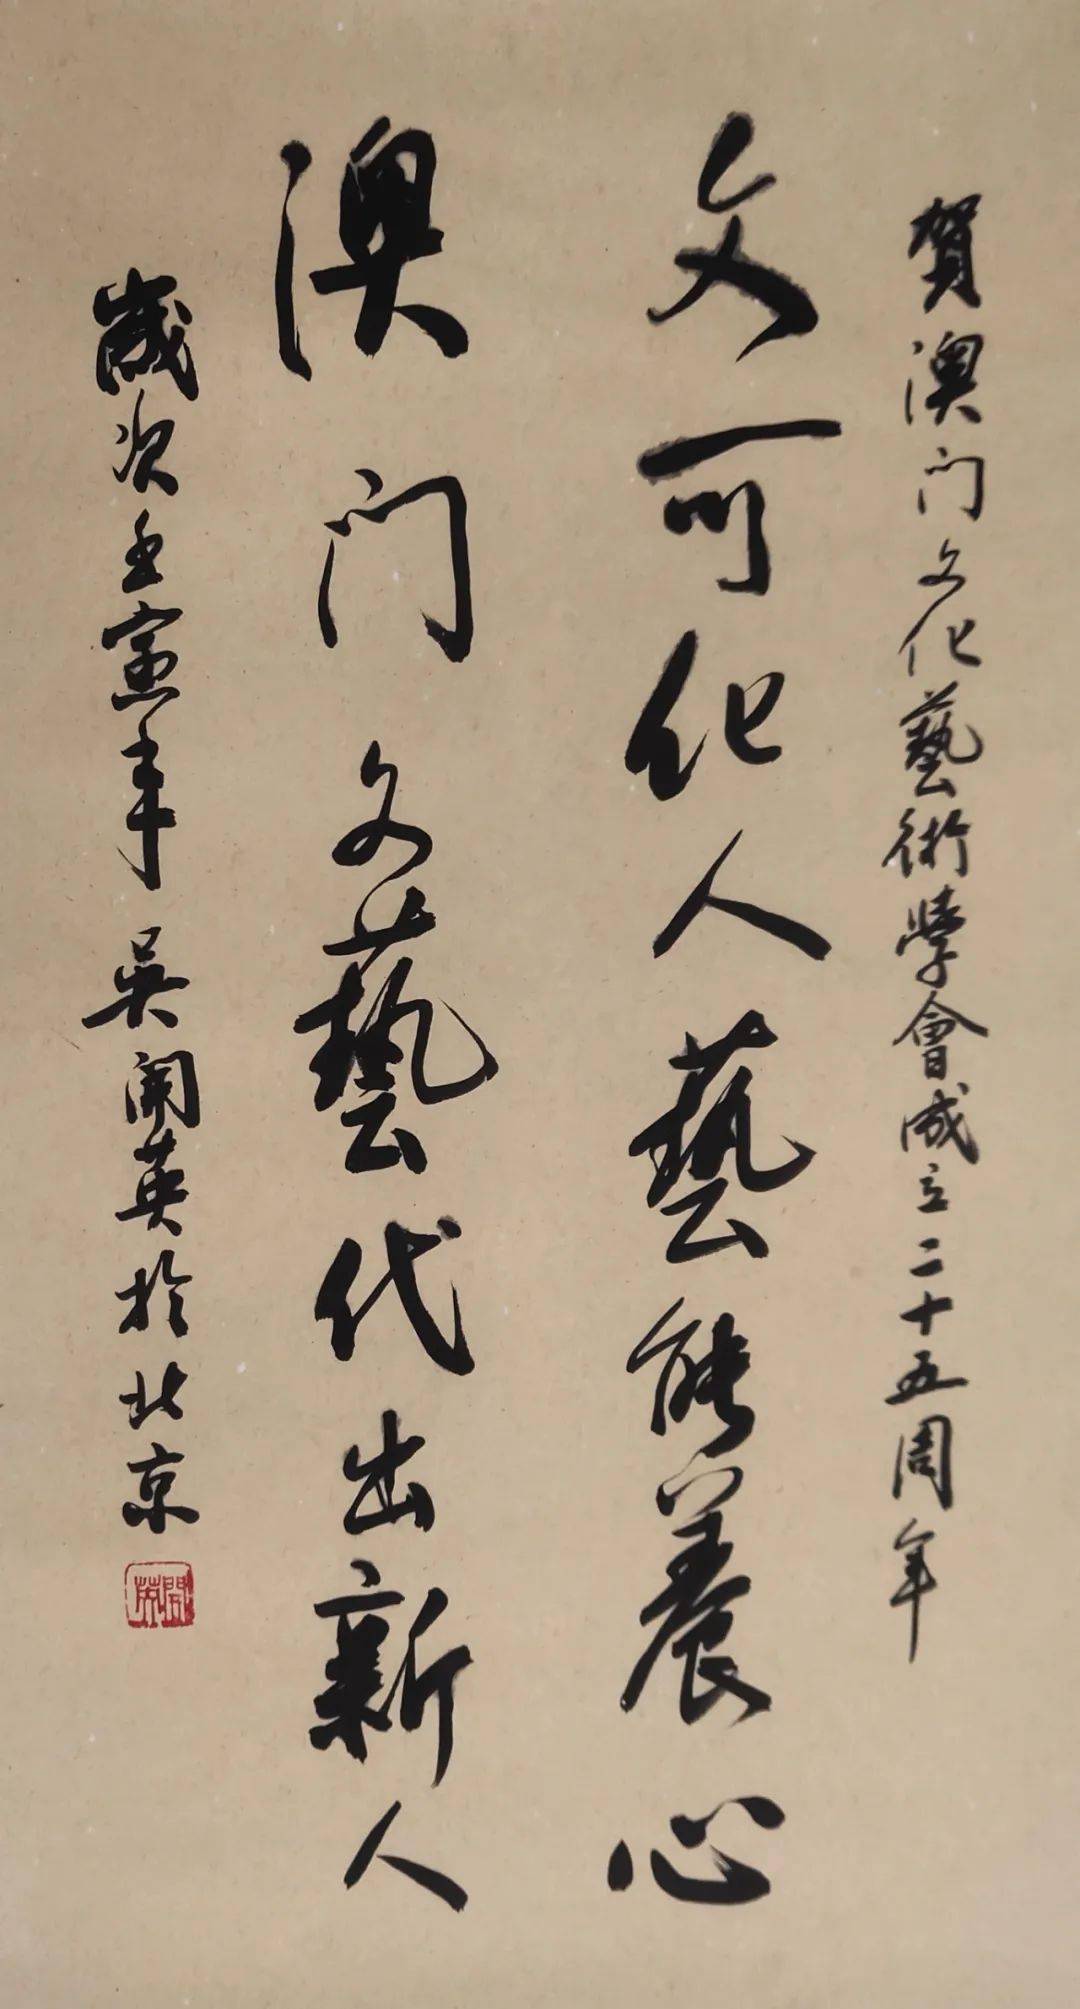 賀澳门文化藝術學會成立二十五周年
文可化人藝能養心
澳门文藝代出新人
歲次壬寅年吴開英於北京
開英